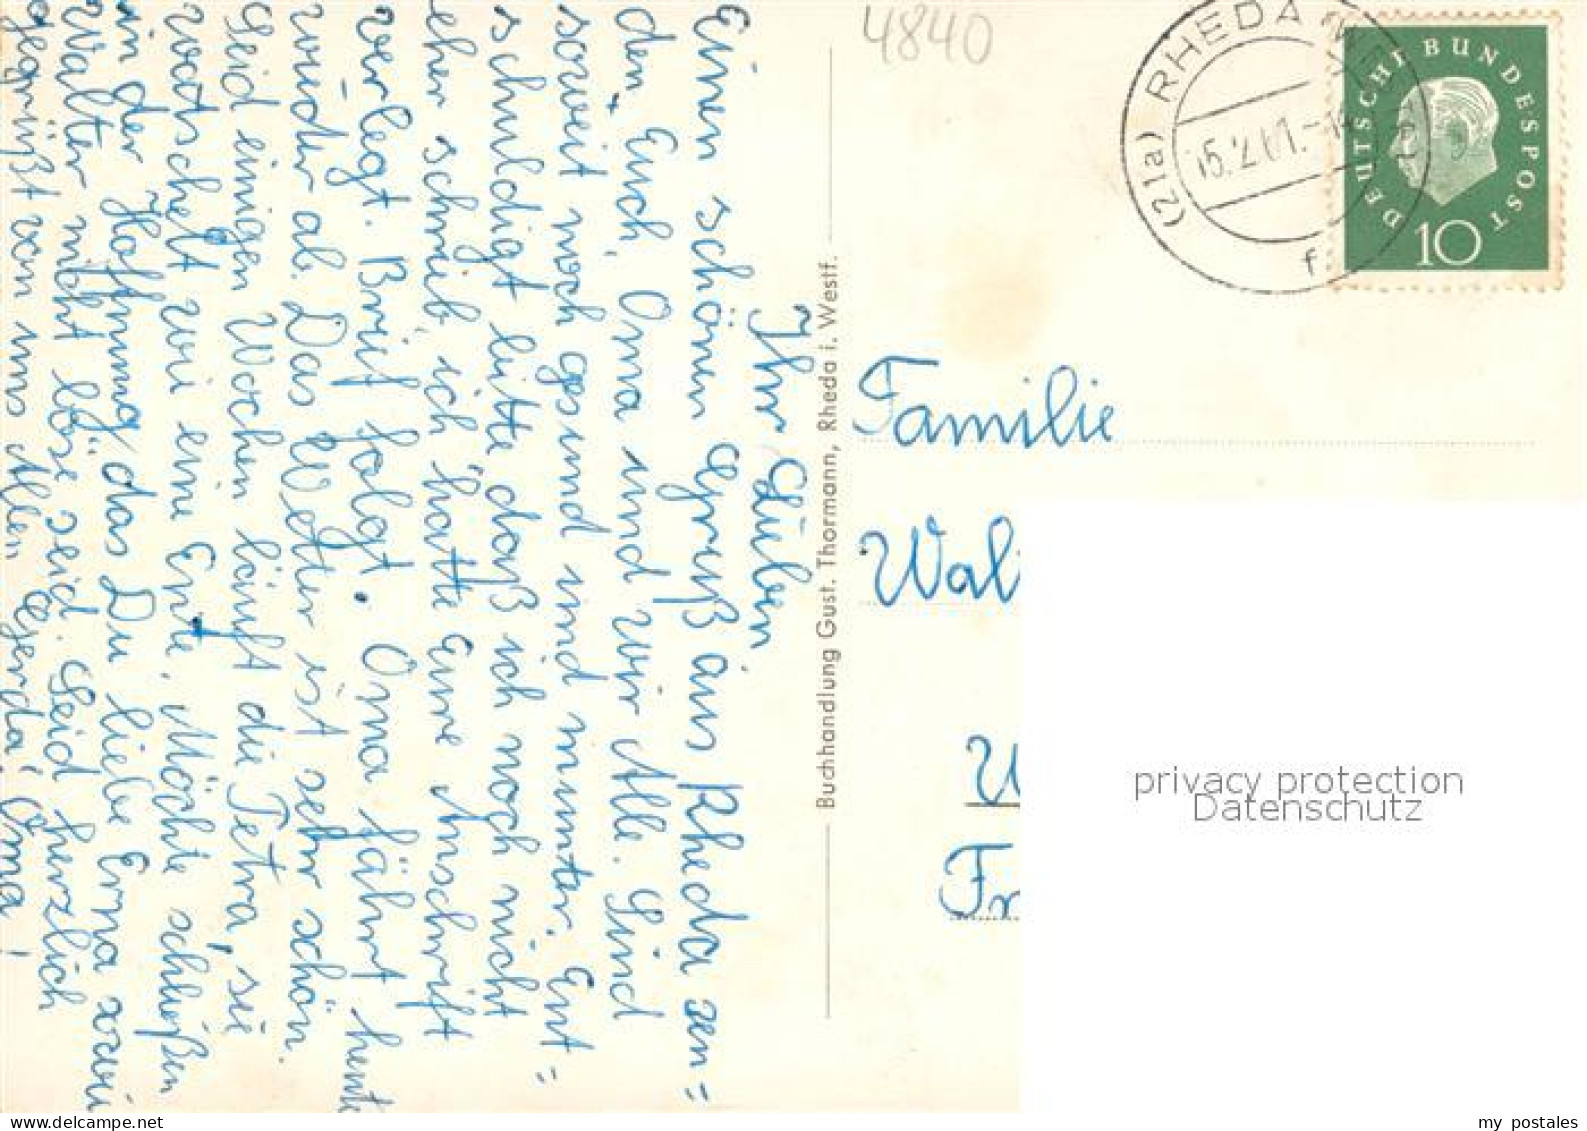 Ihr Lieben
Einen schönen Gruß aus Rheda sen=
den Euch, Oma und wir Alle. Sind
soweit noch gesund und munter. Ent=
schuldigt bitte daß ich noch nicht
eher schrieb, ich hatte Eure Anschrift
verlegt. Brief folgt. Oma fährt heute
wieder ab. Das Wetter ist sehr schön.
Seid einigen Wochen läuft die Petra, sie
watschelt wie eine Ente. Möchte schließen
in der Hoffnung, das Du liebe Erna xxxi
Walter nicht böse seid. Seid herzlich
gegrüßt von uns Allen Gerda, Oma!
Buchhandlung Gust. Thormann, Rheda i. Westf.
4840
(21a) RHEDA
15.2.61.-14
f
DEUTSCHE BUNDESPOST
10
Familie
Wal
U
Fr
privacy protection
Datenschutz
www.delcampe.net
my postales